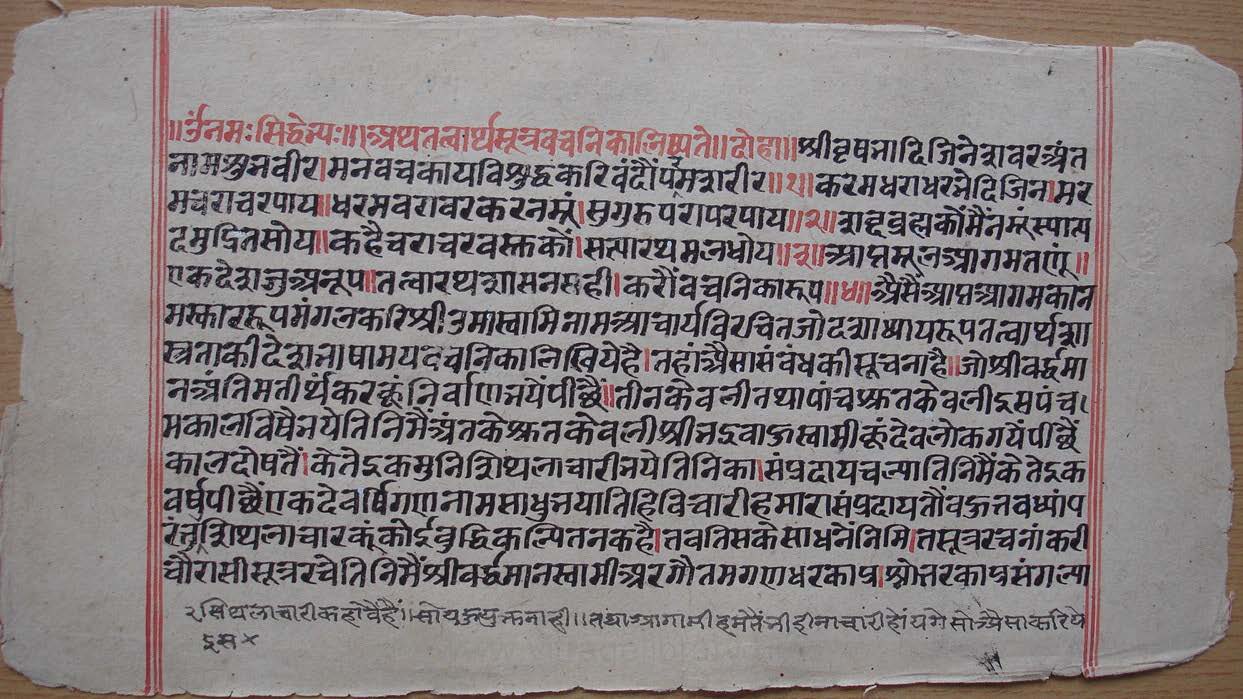 ॥ॐनमःसिद्धेभ्यः॥अथतत्वार्थसूत्रवचनिकालिष्यते॥दोहा॥श्रीवृषभादिजिनेशवरअंत
नामशुभवीर।मनवचकायविशुद्धकरिवंदौंपरमशरीर॥१॥करमधराधरभेदिजिन।मर
मचराचरपाय॥धरमवरावरकरनमूं।सुगुरुपरापरपाय॥२॥शब्दब्रह्मकौंमैंनमूंस्यात्प
दमुद्रितसोय॥कहैचराचरवस्तकौं।सत्यारथमलधोय॥३॥आप्तमूलआगमतणूं॥
एकदेशजुअनूप॥तत्वारथशासनसही।करौंवचनिकारूप॥४॥अैसैंआप्तआगमकौन
मस्काररूपमंगलकरिश्रीउमास्वामिनामआचार्यविरचितजोदशाध्यायरूपतत्वार्थशा
स्त्रताकीदेशभाषामयवचनिकालिखियेहै।तहांअैसासंबंधकीसूचनाहै॥जोश्रीवर्द्धमा
नअंतिमतीर्थंकरकूंनिर्वाणभयेंपीछैं॥तीनकेवलीतथापांचश्रुतकेवलीइसपंच
मकालविषैभयेतिनिमैंअंतकेश्रुतकेवलीश्रीभद्रबाहुस्वामीकूंदेवलोकगयेंपीछैं
कालदोषतैं।केतेइकमुनिशिथलाचारीभयेतिनिका।संप्रदायचल्यातिनिमैंकेतेइक
वर्षपीछैंएकदेवर्षिगणनामसाधुभयातिहिविचारीहमारासंप्रदायतौंबहुतवध्यांप
रंतुशिथलाचारकूंकोईबुद्धिकल्पितनकहै।तबतिसकेसाधनेंनिमि।तसूत्ररचनांकरी
चौरासीसूत्ररचेतिनिमैंश्रीवर्द्धमानस्वामीअरगौतमगणधरकाप्रश्नोत्तरकाप्रसंगल्या
२सिथलाचारीकहावैहैं॥सोयहयुक्तनाही॥तथाआगामीहमतैंभीहीनाचारीहोंयगेसोअैसाकरिये
इस×